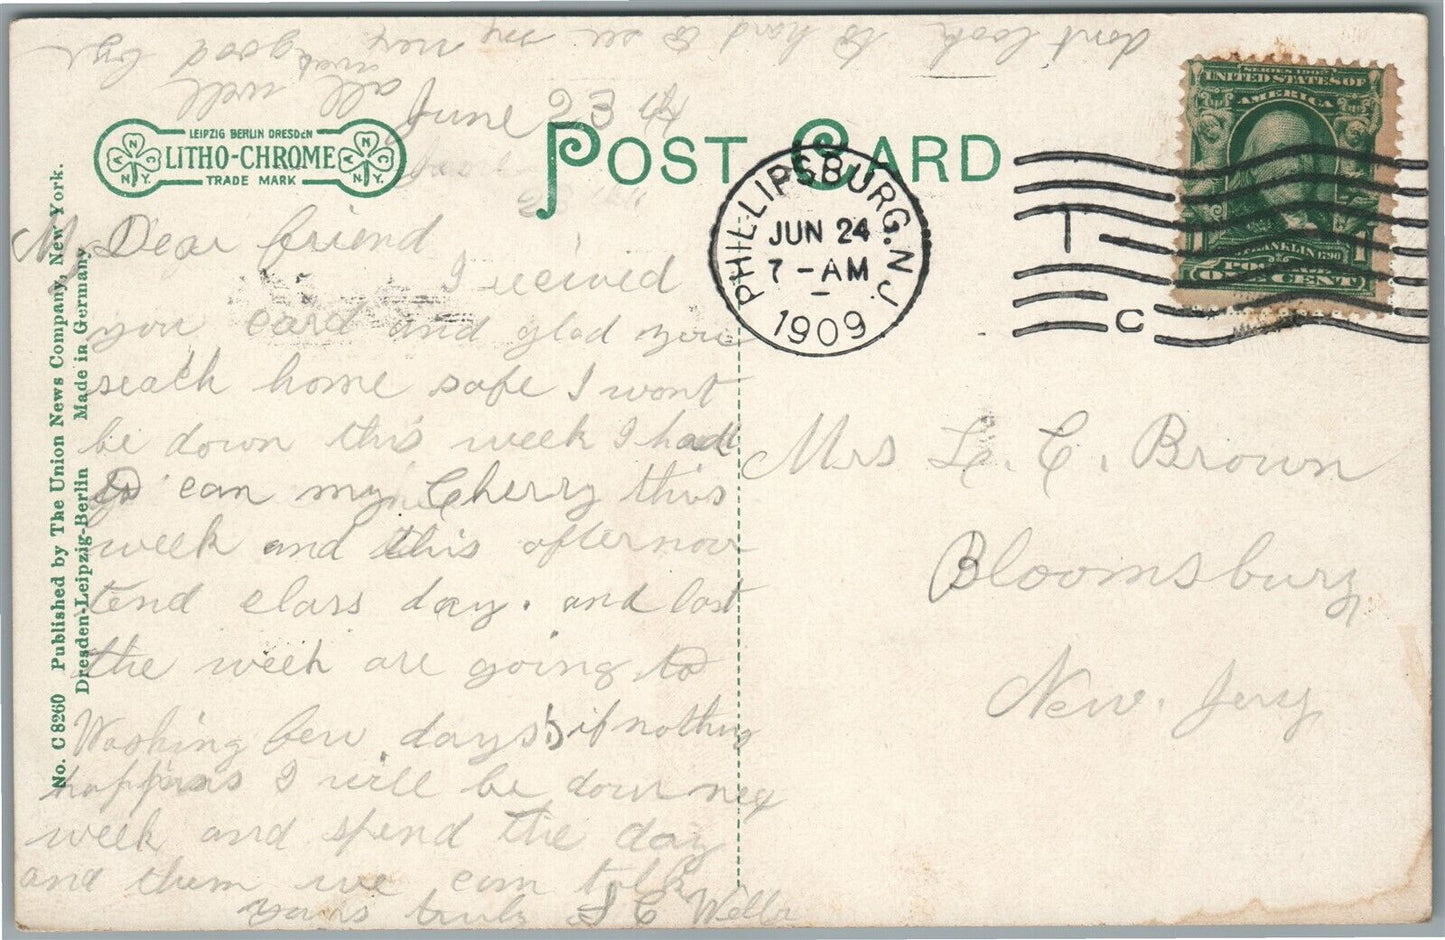 dont look to hard to see me nex
all well
good bye
June 23
LEIPZIG BERLIN DRESDEN
LITHO-CHROME
TRADE MARK
N.Y.
N.Y.
POST CARD
PHILLIPSBURG. N.J.
JUN 24
7-AM
1909
C
SERIES 1902
UNITED STATES OF
AMERICA
1
1
FRANKLIN 1790
POSTAGE
ONE CENT
No. C 8260 Published by The Union News Company, New York.
Dresden-Leipzig-Berlin Made in Germany
My Dear friend
I recived
you card and glad you
home safe I wont
be down this week I had
to can my Cherry this
week and this afternoon
tend class day. and last
the week are going to
few days if nothing
happens I will be down nex
week and spend the day
and them we can talk
yours truly
Mrs L. C. Brown
Bloomsbury
New. Jery